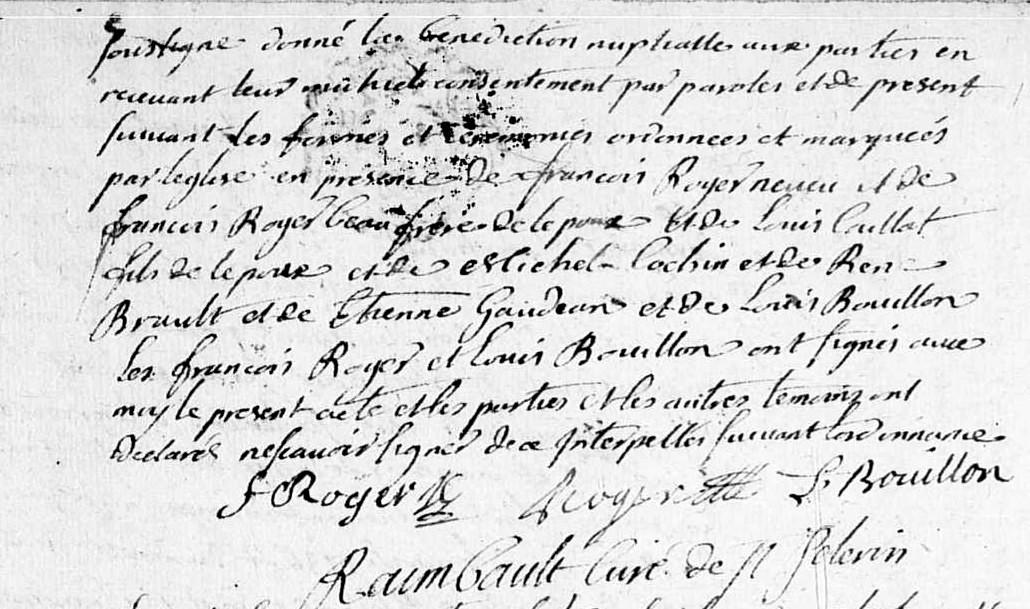 soussigne donné la benediction nuptialle aux parties en
recevant leur mutuel consentement par paroles et de present
suivant les formes et ceremonies ordonnees et marquees
par leglise en presence de francois Roger neveu et de
francois Roger beaufrere de lepoux et de Louis Caillat
fils de lepoux et de Michel Cochin et de Rene
Brault et de Etienne Gaudeau et de Louis Bouillon
les francois Roger et Louis Bouillon ont signés avec
moy le present acte et les parties et les autres temoins ont
declarés ne scavoir signer de ce Interpellés suivant lordonnance
f Roger Roger L Bouillon
Raimbault Curé de St Pelerin